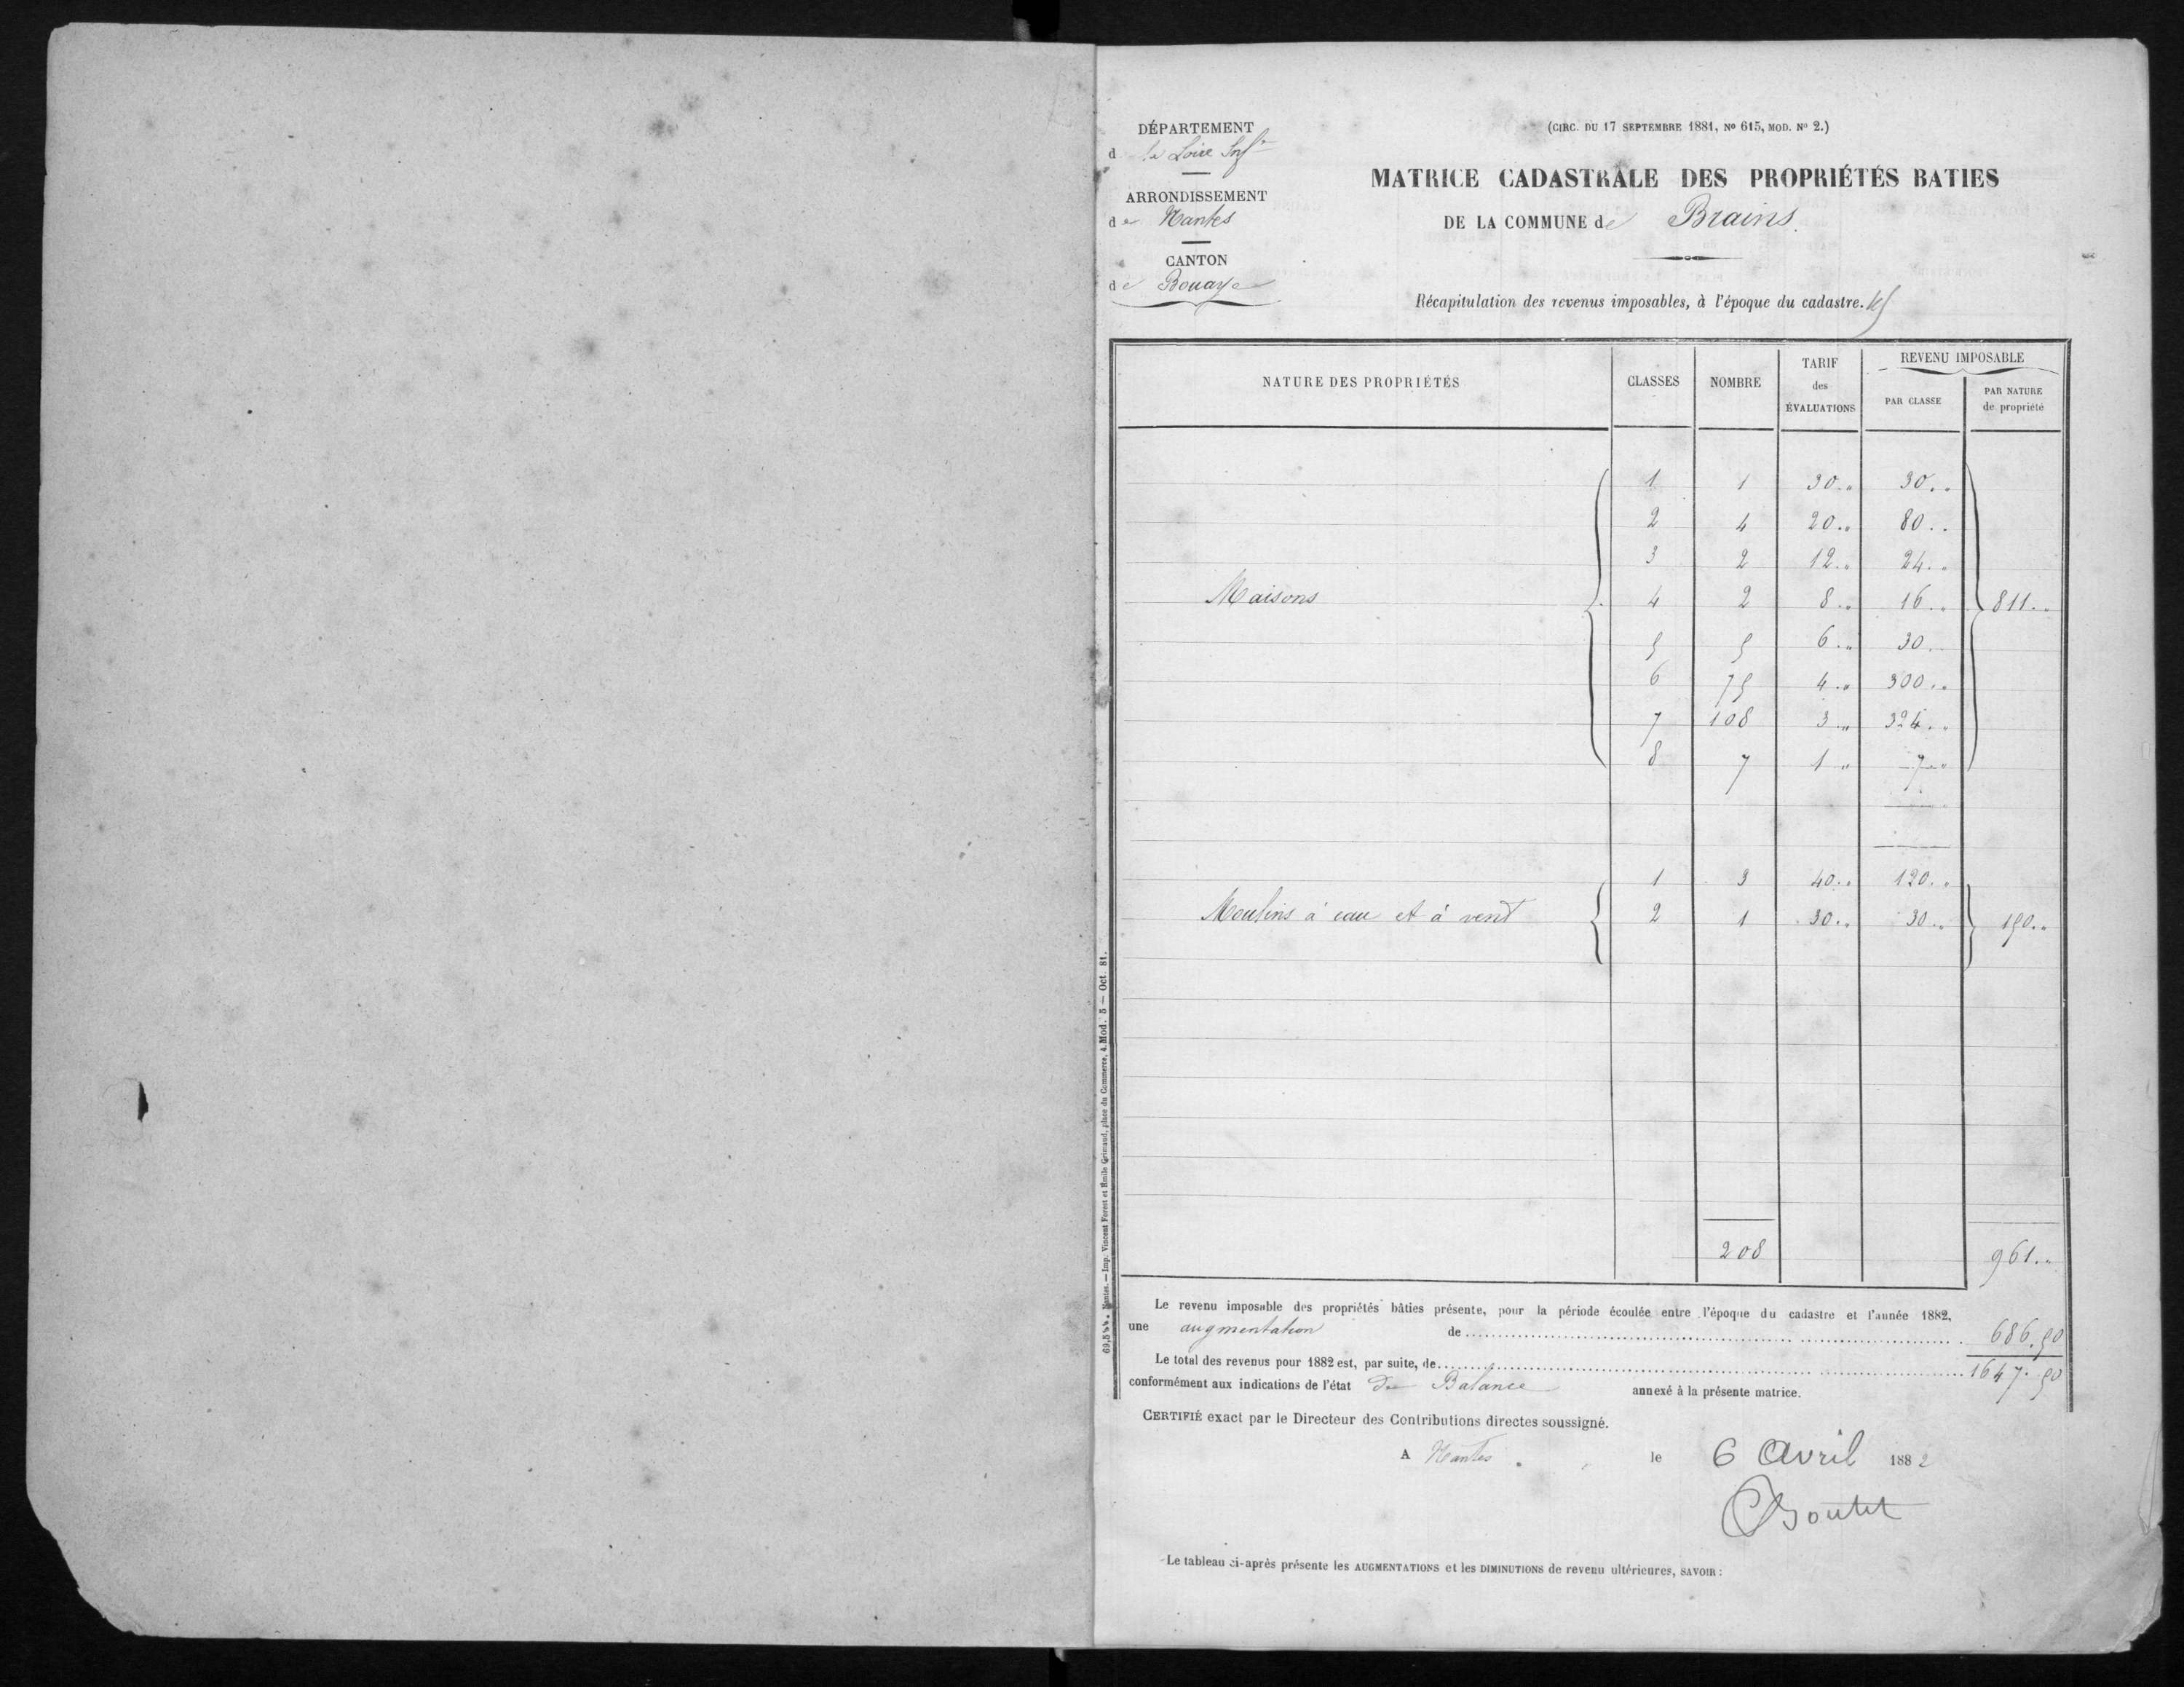 DÉPARTEMENT
d la Loire Infre
ARRONDISSEMENT
de Nantes
CANTON
de Bouaye
(CIRC. DU 17 SEPTEMBRE 1881, No 615, MOD. No 2.)
MATRICE CADASTRALE DES PROPRIÉTÉS BATIES
DE LA COMMUNE de Brains.
Récapitulation des revenus imposables, à l'époque du cadastre.
NATURE DES PROPRIÉTÉS CLASSES NOMBRE TARIF des ÉVALUATIONS REVENU IMPOSABLE PAR CLASSE PAR NATURE de propriété
1 1 30.. 30..
2 4 20.. 80..
3 2 12.. 24..
Maisons 4 2 8.. 16.. 811..
5 5 6.. 30..
6 75 4.. 300..
7 108 3.. 324..
8 7 1.. 7..
1 3 40.. 120..
Moulins à eau et à vent 2 1 30.. 30.. 150..
208 961..
Le revenu imposable des propriétés bâties présente, pour la période écoulée entre l'époque du cadastre et l'année 1882,
une augmentation de 686.50
Le total des revenus pour 1882 est, par suite, de 1647.50
conformément aux indications de l'état de Balance annexé à la présente matrice.
CERTIFIÉ exact par le Directeur des Contributions directes soussigné.
A Nantes. le 6 Avril 1882
Boutet
Le tableau ci-après présente les AUGMENTATIONS et les DIMINUTIONS de revenu ultérieures, SAVOIR :
Nantes. — Imp. Vincent Forest et Emile Grimaud, place du Commerce, 4. Mod. 5 — Oct. 81.